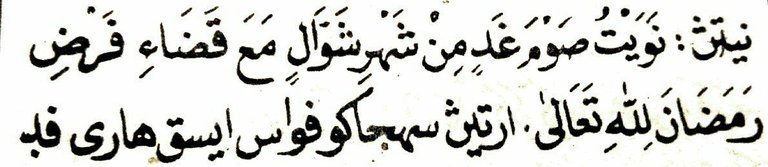 نيتڽ : نَوَيْتُ صَوْمَ غَدٍ مِنْ شَهْرِ شَوَّالٍ مَعَ قَضَاءِ فَرْضِ
رَمَضَانَ لِلّٰهِ تَعَالىٰ. ارتيڽ سهجاكو فواس ايسق هاري فد